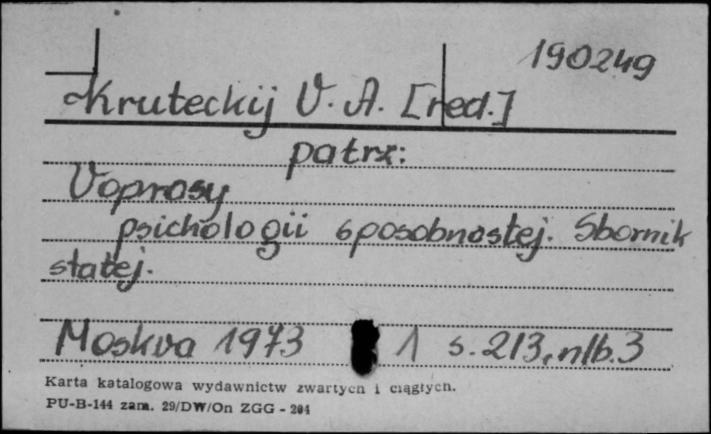 190249
Kruteckij V. A. [red.]
patrz:
Voprosy
psichologii sposobnostej. Sbornik
statej.
Moskva 1973 1 s. 213, nlb. 3
Karta katalogowa wydawnictw zwartych i ciągłych.
PU-B-144 zam. 29/DW/On ZGG - 204